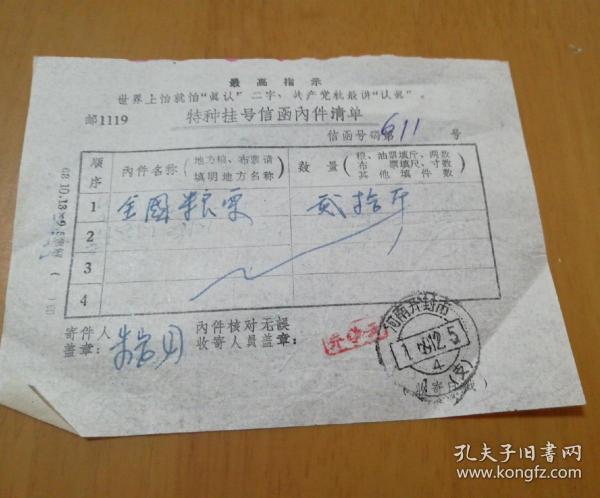 最高指示
世界上怕就怕“眞认”二字，共产党就最讲“认眞”。
邮1119
特种挂号信函內件清单
信函号码第611号
順序
內件名称（地方粮、布票请填明地方名称）
数量（粮、油票填斤、两数 布票填尺、寸数 其他填件数）
1 全國粮票 贰拾斤
2
3
4
寄件人盖章：
內件核对无误
收寄人员盖章：
河南开封市
4
(支)
孔夫子旧书网
www.kongfz.com